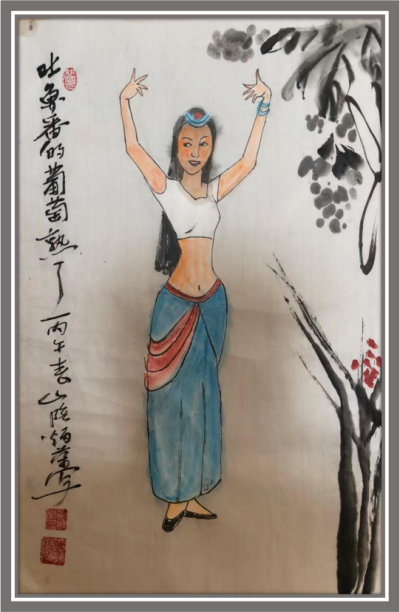 吐鲁番的葡萄熟了丙午春山